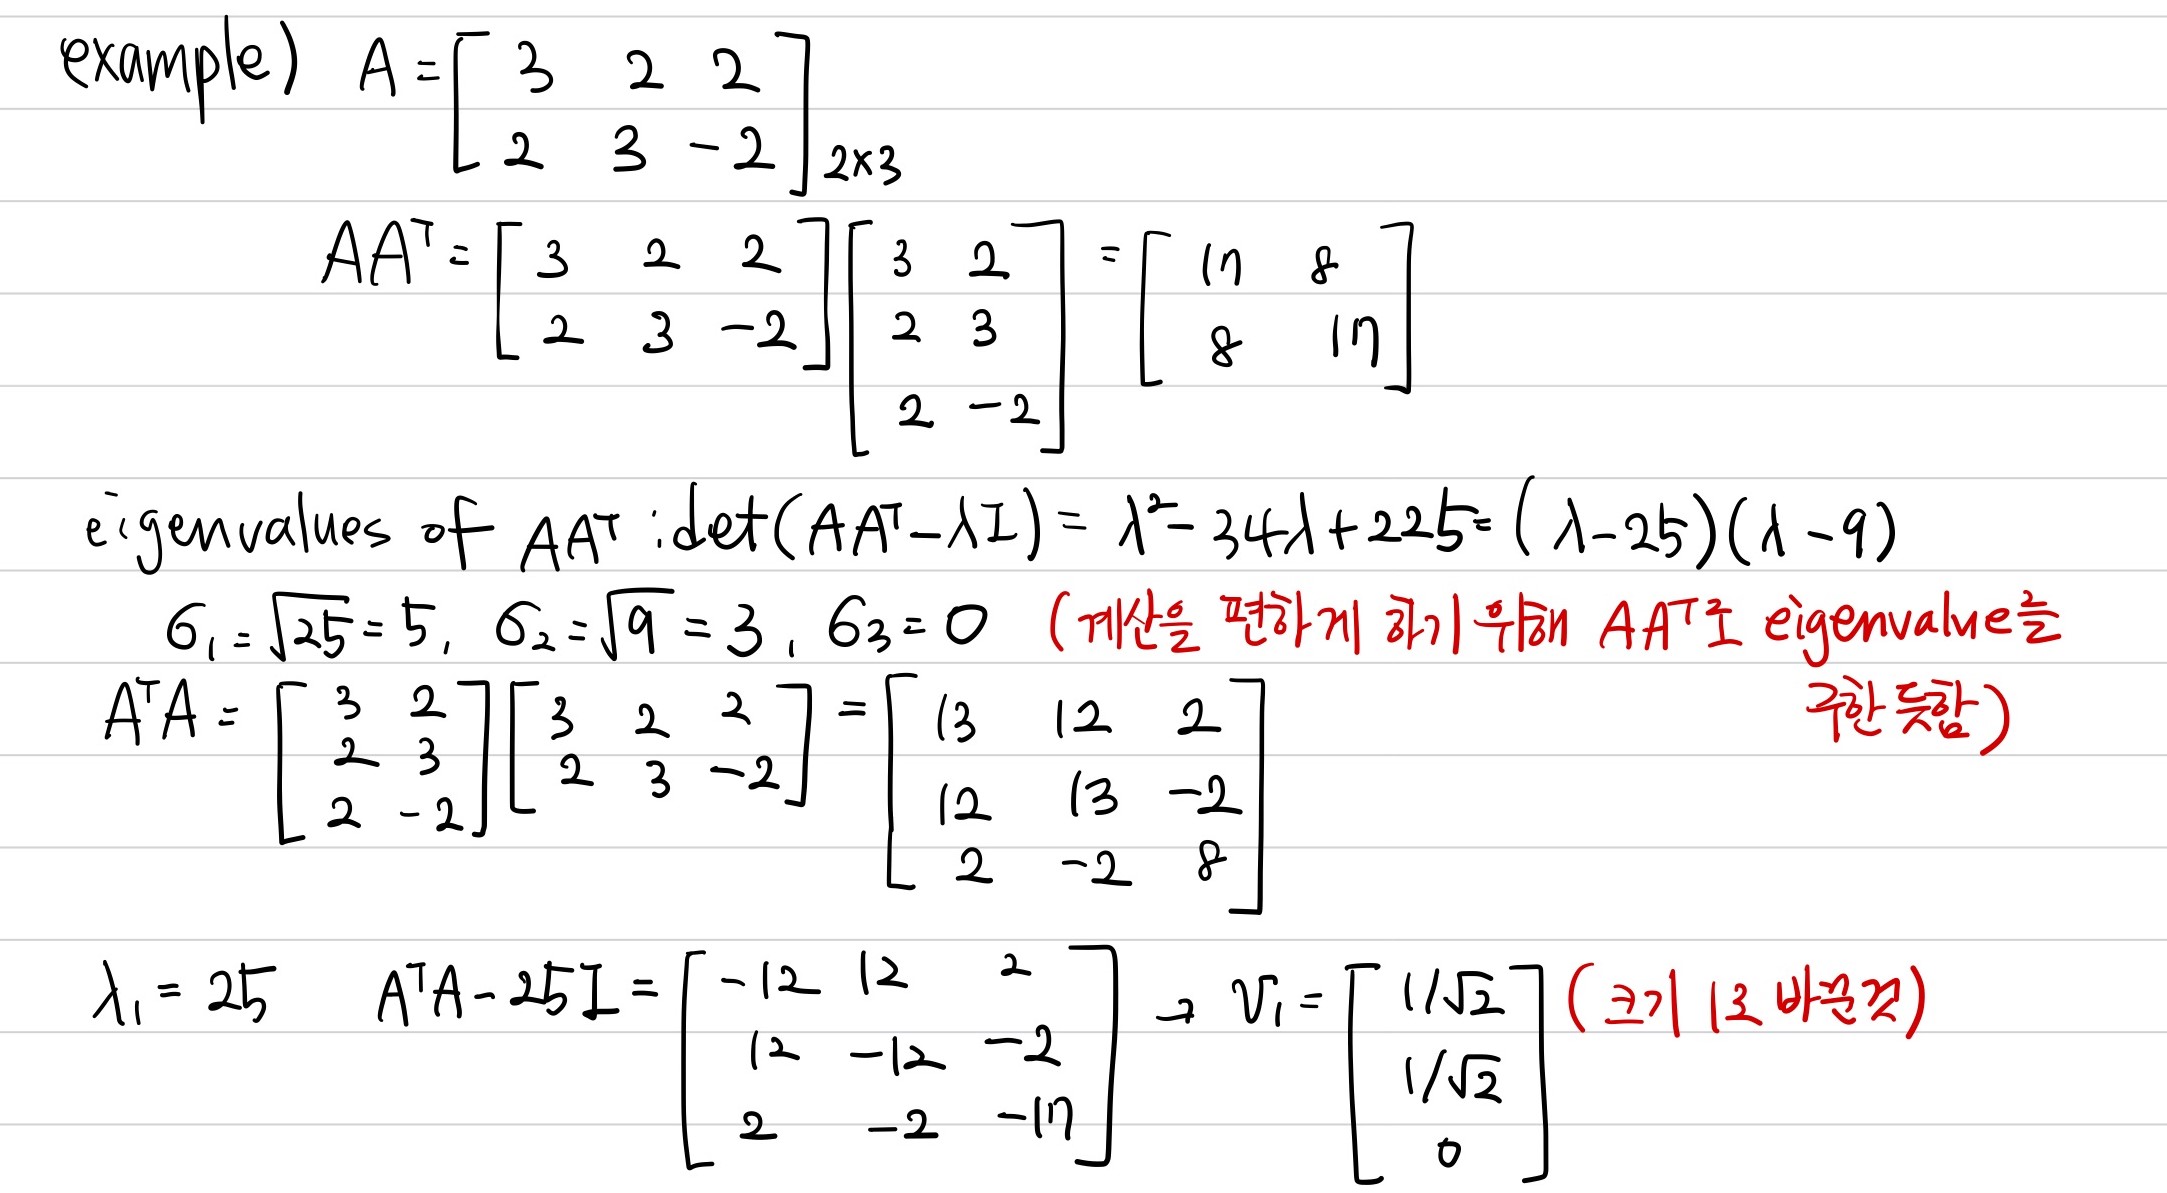 example) A = [ 3 2 2 ; 2 3 -2 ] 2×3
AAᵀ = [ 3 2 2 ; 2 3 -2 ] [ 3 2 ; 2 3 ; 2 -2 ] = [ 17 8 ; 8 17 ]
eigenvalues of AAᵀ : det(AAᵀ-λI) = λ²-34λ+225 = (λ-25)(λ-9)
σ₁ = √25 = 5, σ₂ = √9 = 3, σ₃ = 0 (계산을 편하게 하기 위해 AAᵀ로 eigenvalue를
구한 듯함)
AᵀA = [ 3 2 ; 2 3 ; 2 -2 ] [ 3 2 2 ; 2 3 -2 ] = [ 13 12 2 ; 12 13 -2 ; 2 -2 8 ]
λ₁ = 25 AᵀA-25I = [ -12 12 2 ; 12 -12 -2 ; 2 -2 -17 ] → V₁ = [ 1/√2 ; 1/√2 ; 0 ] (크기 1로 바꾼것)